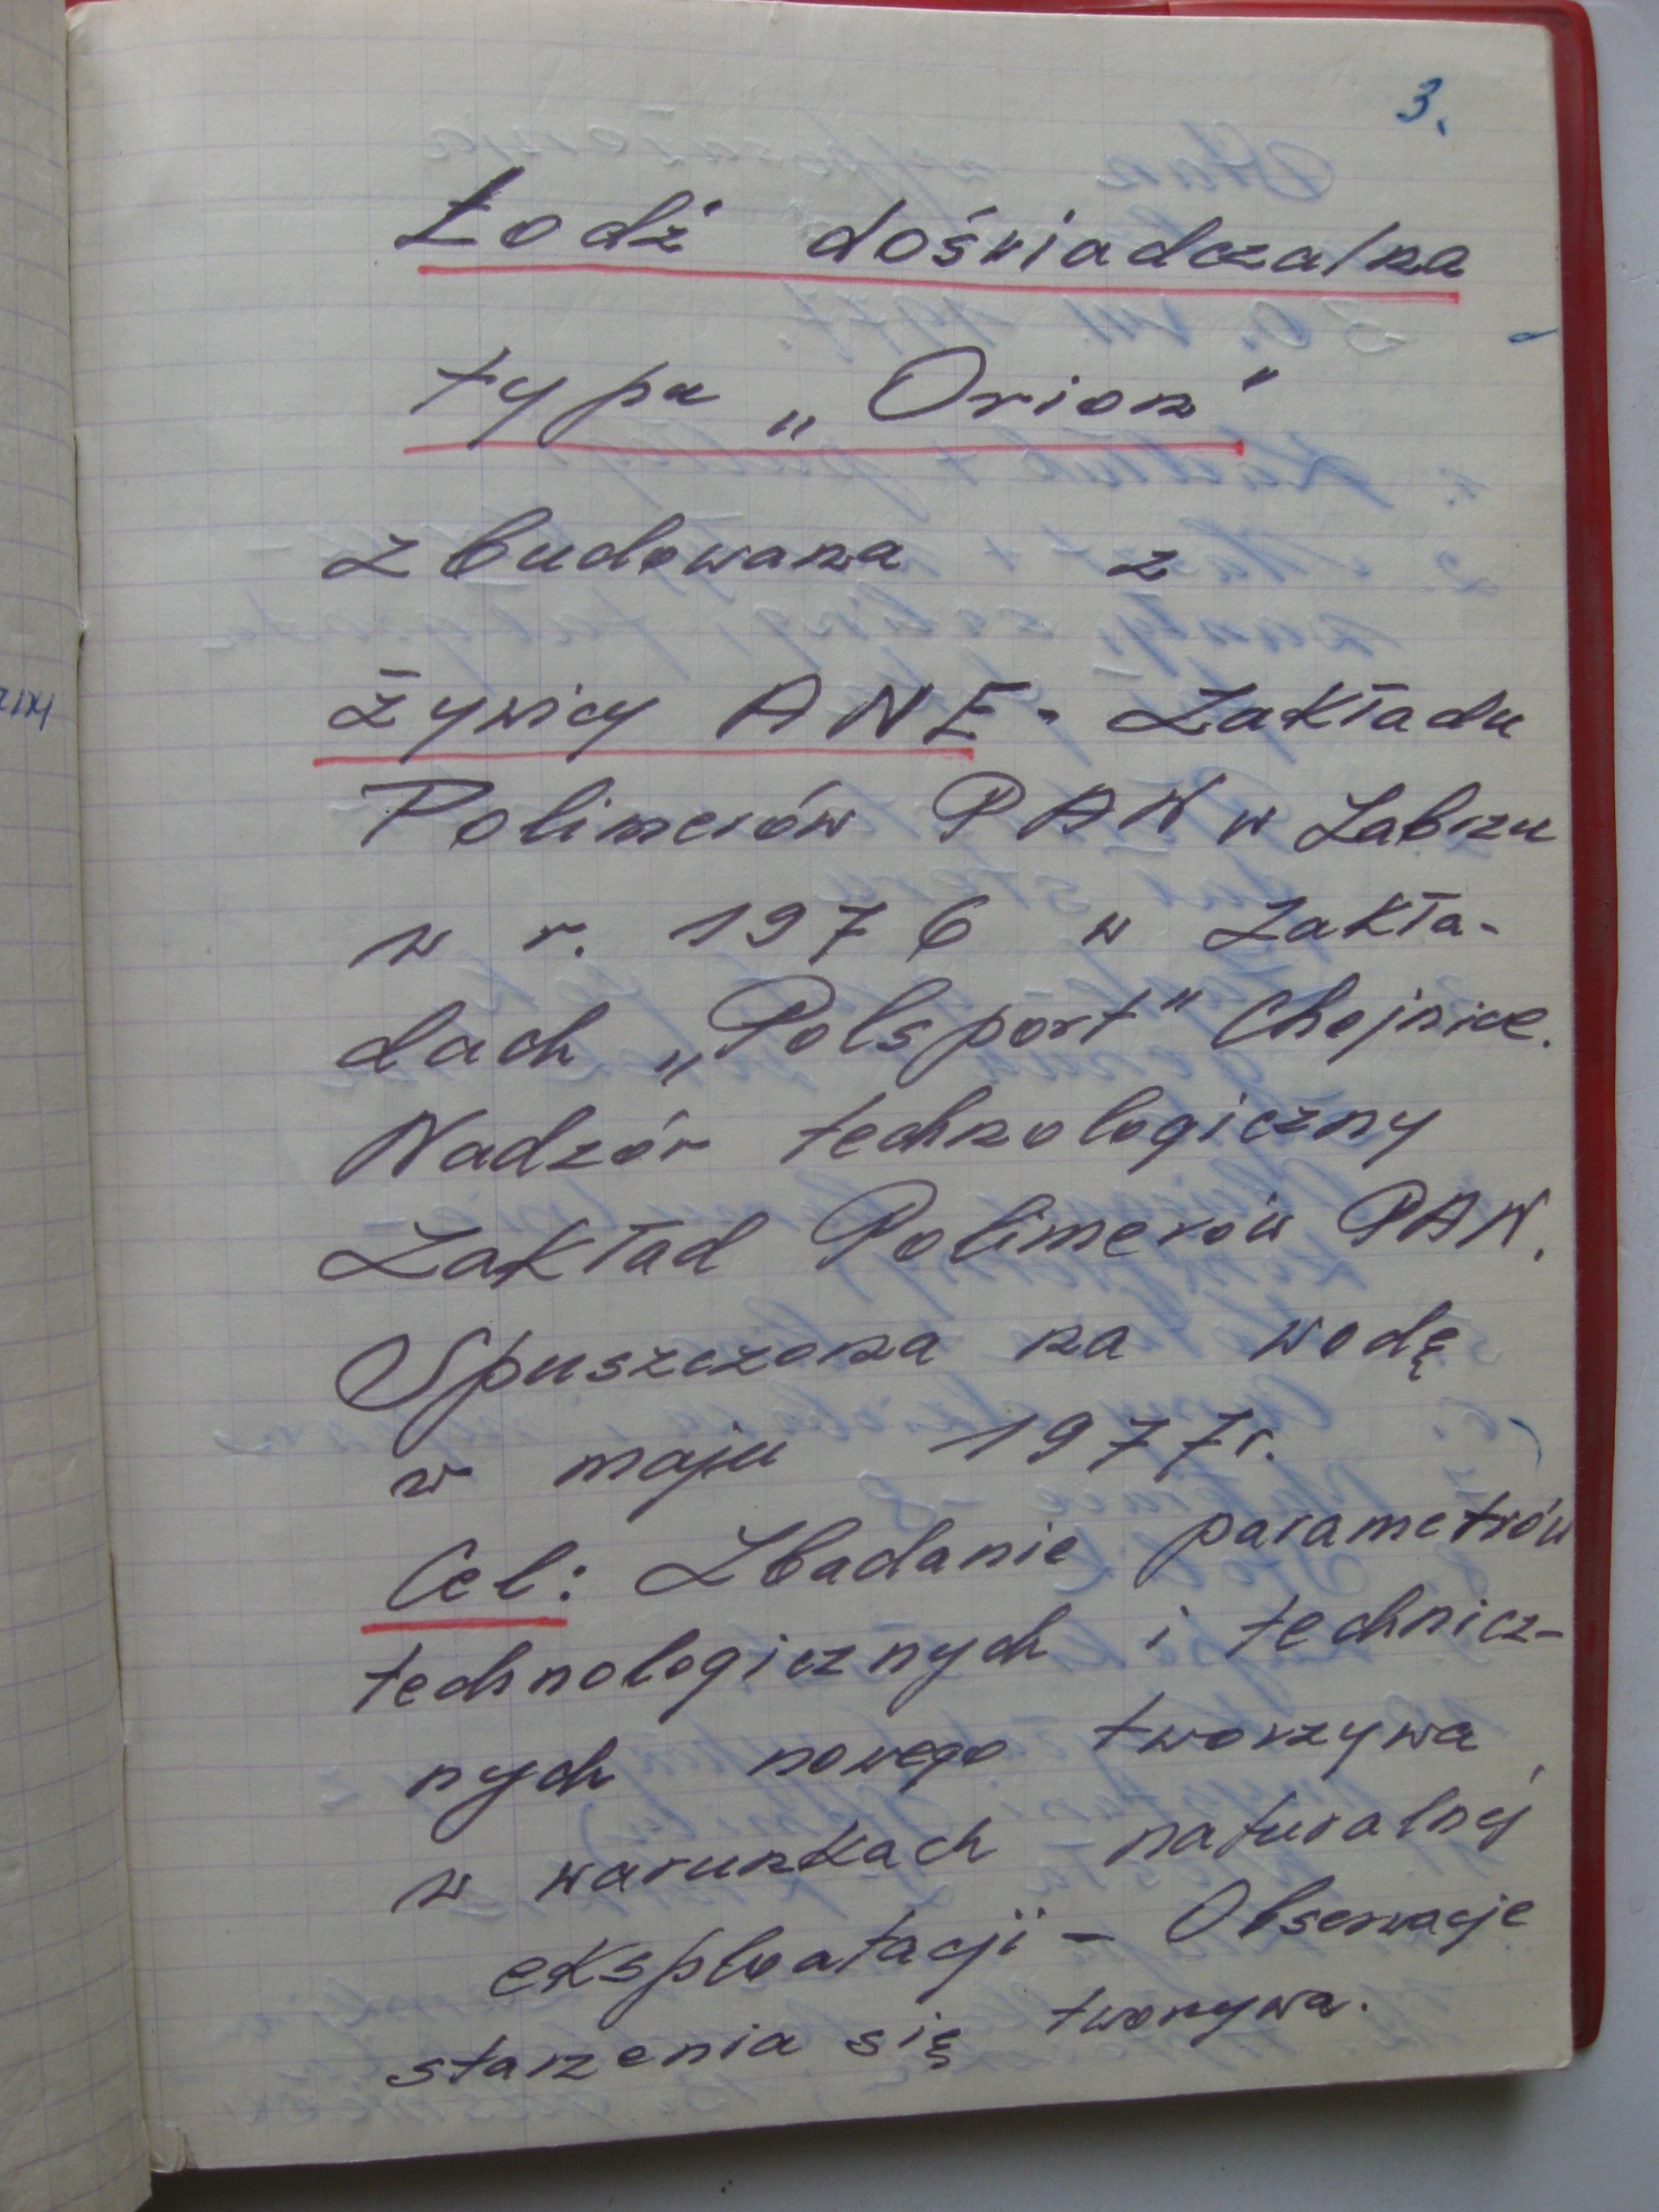 3.
Łodź doświadczalna
typu „Orion"
zbudowana z
żywicy ANE - Zakładu
Polimerów PAN w Zabrzu
w r. 1976 w Zakła-
dach „Polsport" Chojnice.
Nadzór technologiczny
Zakład Polimerów PAN.
Spuszczona na wodę
w maju 1977r.
Cel: Zbadanie parametrów
technologicznych i technicz-
nych nowego tworzywa
w warunkach naturalnej
eksploatacji - Obserwacje
starzenia się tworzywa.